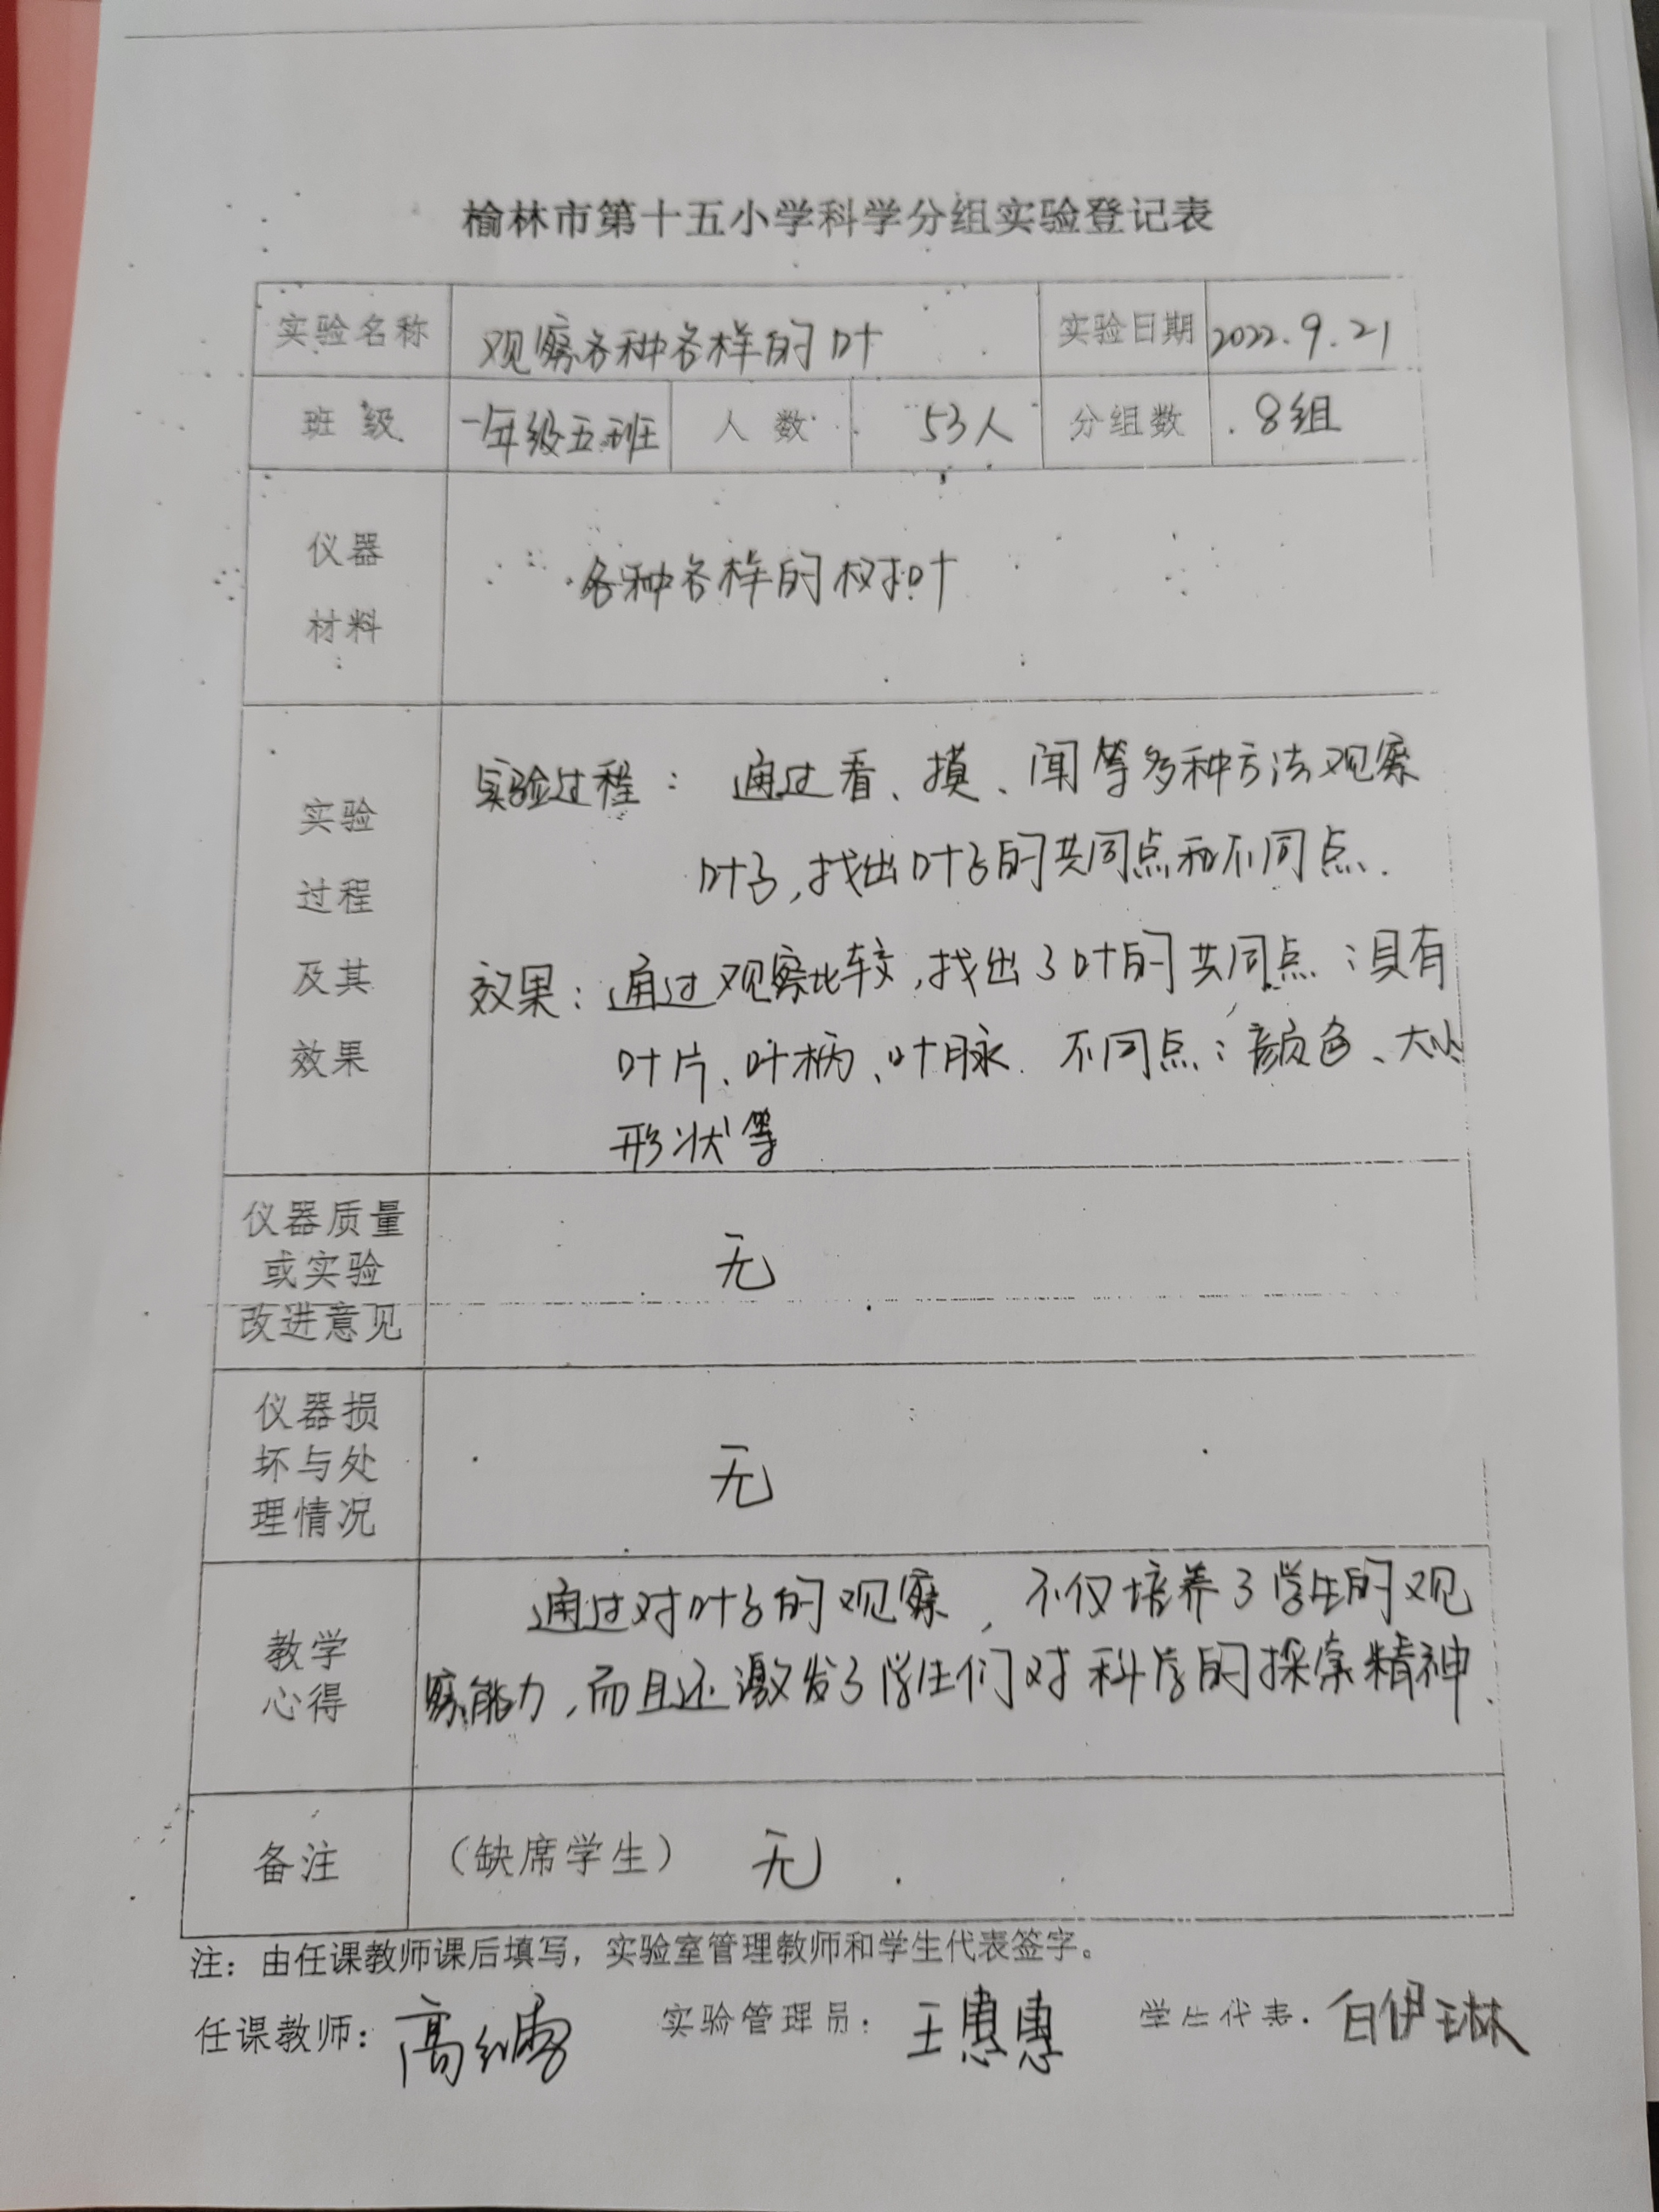 榆林市第十五小学科学分组实验登记表
实验名称 观察各种各样的叶 实验日期 2022.9.21
班 级 一年级五班 人 数 53人 分组数 8组
仪器
材料
各种各样的树叶
实验
过程
及其
效果
实验过程： 通过看、摸、闻等多种方法观察
叶子,找出叶子的共同点和不同点.
效果：通过观察比较,找出了叶的共同点：具有
叶片、叶柄、叶脉. 不同点：颜色、大小
形状等
仪器质量
或实验
改进意见
无
仪器损
坏与处
理情况
无
教学
心得
通过对叶子的观察，不仅培养了学生的观
察能力,而且还激发了学生们对科学的探索精神.
备注 （缺席学生） 无
注：由任课教师课后填写，实验室管理教师和学生代表签字。
任课教师：高 实验管理员：王惠惠 学生代表：白伊琳